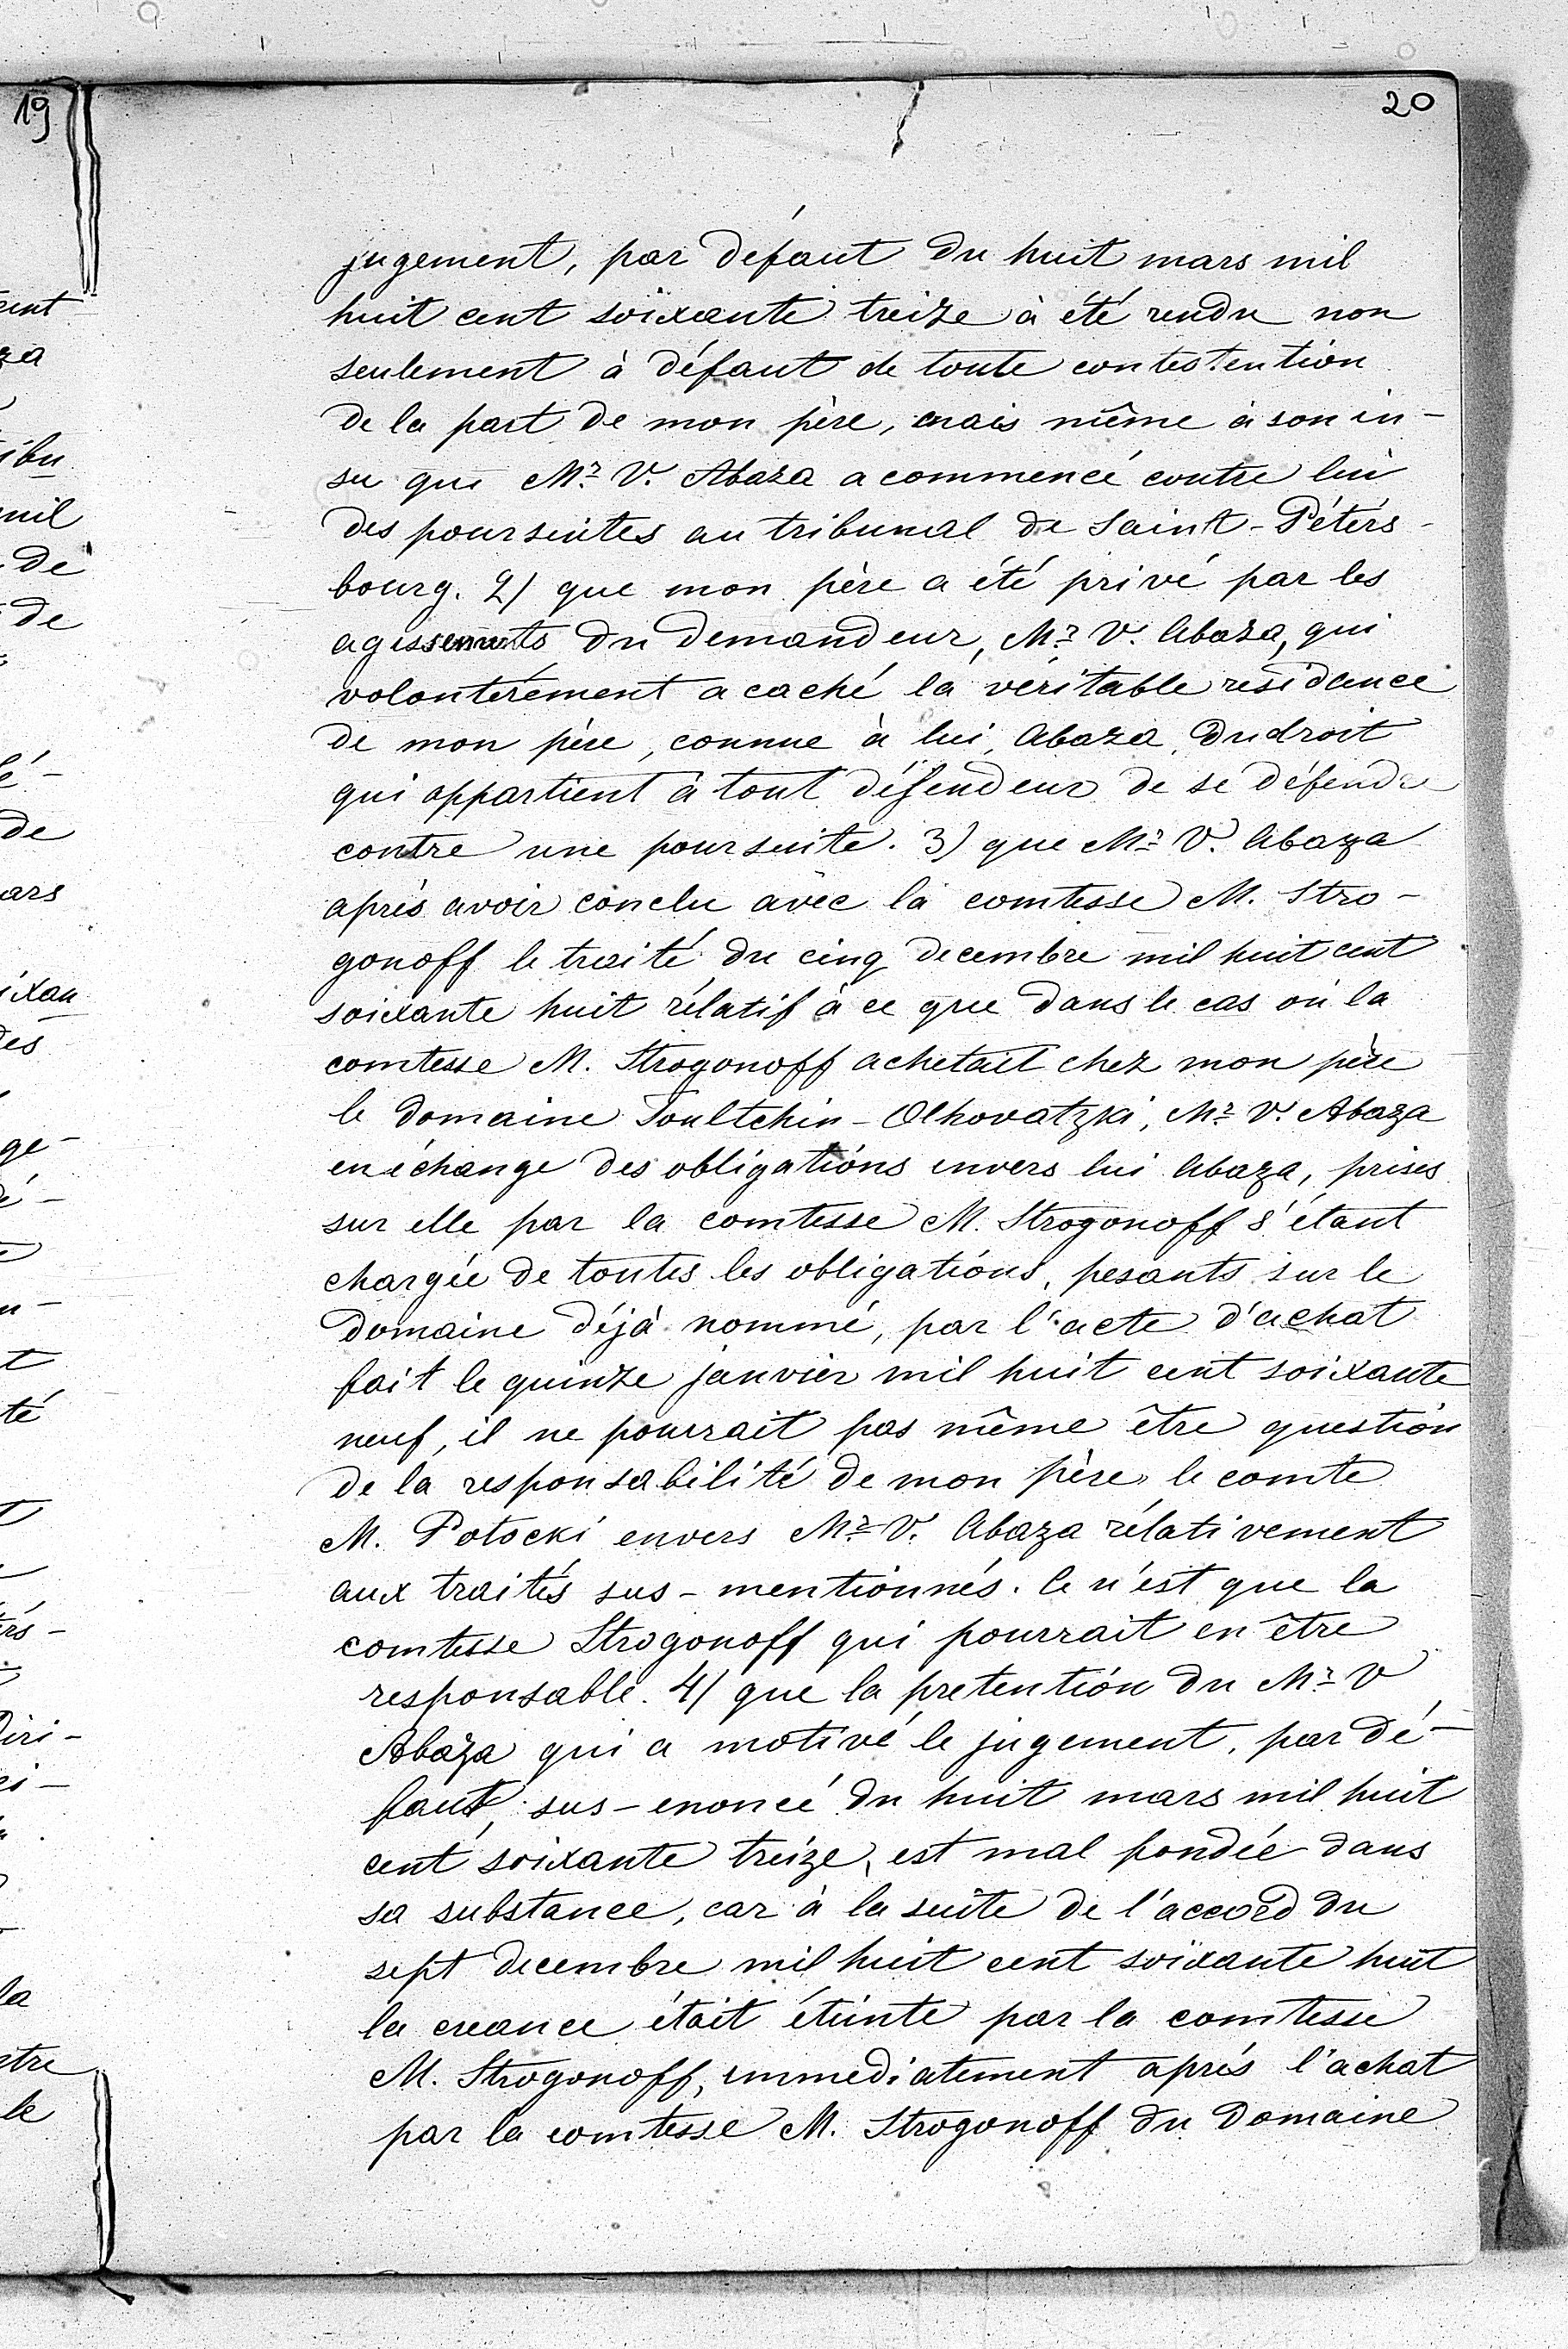 19
20
jugement, par défaut du huit mars mil
huit cent soixante treize à été rendu non
seulement à défaut de toute contestention
de la part de mon père, mais même à son in-
su que Mr. V. Abaza a commencé contre lui
des poursuites au tribunal de Saint-Pétérs-
bourg. 2) que mon père a été privé par les
agissements du demandeur, Mr. V. Abaza, qui
volontérément a caché la véritable résidance
de mon père, connue à lui, Abaza, du droit
qui appartient à tout défendeur de se défendre
contre une poursuite. 3) que Mr. V. Abaza
après avoir conclu avec la comtesse M. Stro-
gonoff le traité du cinq decembre mil huit cent
soixante huit rélatif à ce que dans le cas où la
comtesse M. Strogonoff achetait chez mon père
le domaine Toultchin-Olhovatzki, Mr. V. Abaza
en échange des obligations envers lui Abaza, prises
sur elle par la comtesse M. Strogonoff s'étant
chargée de toutes les obligations, pesants sur le
domaine déjà nommé, par l'acte d'achat
fait le quinze janvier mil huit cent soixante
neuf, il ne pourrait pas même être question
de la responsabilité de mon père le comte
M. Potocki envers Mr. V. Abaza rélativement
aux traités sus-mentionnés. Ce n'est que la
comtesse Strogonoff qui pourrait en être
responsable. 4) que la pretention du Mr. V
Abaza qui a motivé le jugement, par dé-
faut, sus-enoncé du huit mars mil huit
cent soixante treize, est mal fondée dans
sa substance, car à la suite de l'accord du
sept decembre mil huit cent soixante huit
la creance était éteinte par la comtesse
M. Strogonoff, immediatement après l'achat
par la comtesse M. Strogonoff du domaine